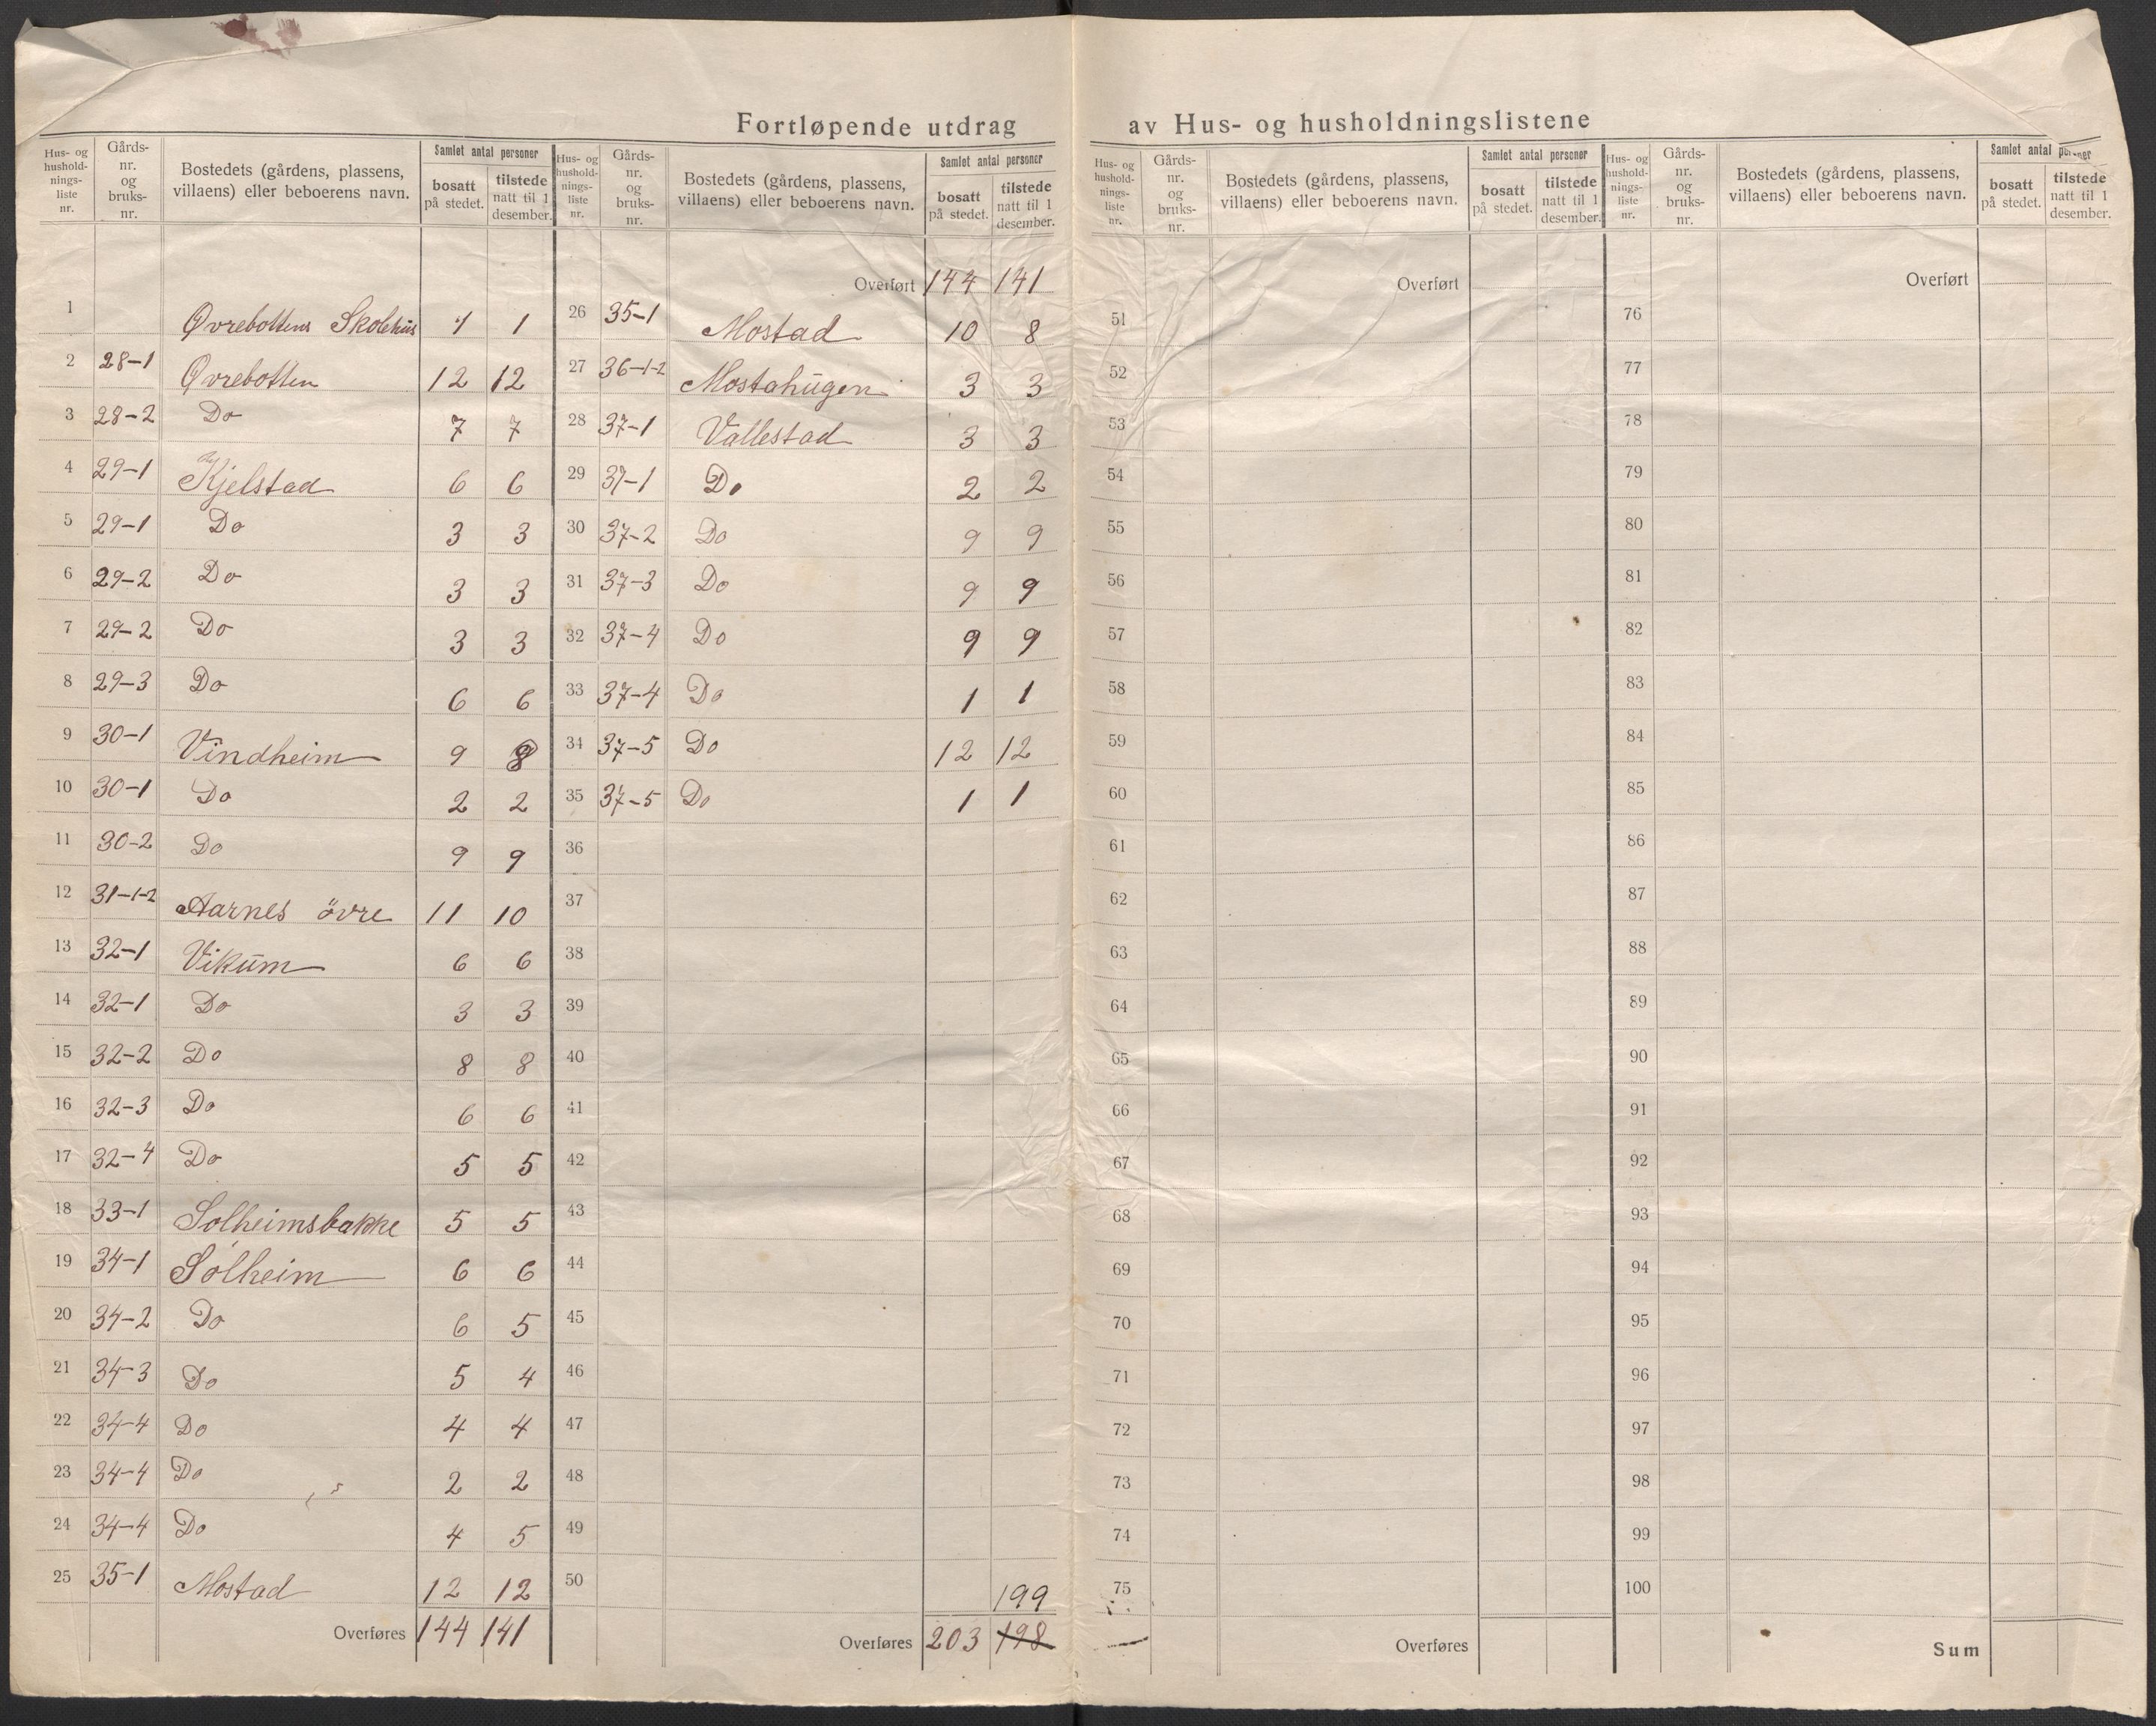 Fortløpende utdrag av Hus- og husholdningslistene
Hus- og hushold-nings-liste nr. | Gårds-nr. og bruks-nr. | Bostedets (gårdens, plassens, villaens) eller beboerens navn. | Samlet antal personer | bosatt på stedet. | tilstede natt til 1 desember.
1 Øvrebottens Skolehus 1 1
2 28-1 Øvrebotten 12 12
3 28-2 Do 7 7
4 29-1 Kjelstad 6 6
5 29-1 Do 3 3
6 29-2 Do 3 3
7 29-2 Do 3 3
8 29-3 Do 6 6
9 30-1 Vindheim 9 8
10 30-1 Do 2 2
11 30-2 Do 9 9
12 31-1-2 Aarnes övre 11 10
13 32-1 Vikum 6 6
14 32-1 Do 3 3
15 32-2 Do 8 8
16 32-3 Do 6 6
17 32-4 Do 5 5
18 33-1 Solheimsbakke 5 5
19 34-1 Solheim 6 6
20 34-2 Do 6 5
21 34-3 Do 5 4
22 34-4 Do 4 4
23 34-4 Do 2 2
24 34-4 Do 4 5
25 35-1 Mostad 12 12
Overføres 144 141
Hus- og hushold-nings-liste nr. | Gårds-nr. og bruks-nr. | Bostedets (gårdens, plassens, villaens) eller beboerens navn. | Samlet antal personer | bosatt på stedet. | tilstede natt til 1 desember.
Overført 144 141
26 35-1 Mostad 10 8
27 36-1-2 Mostahugen 3 3
28 37-1 Vallestad 3 3
29 37-1 Do 2 2
30 37-2 Do 9 9
31 37-3 Do 9 9
32 37-4 Do 9 9
33 37-4 Do 1 1
34 37-5 Do 12 12
35 37-5 Do 1 1
36
37
38
39
40
41
42
43
44
45
46
47
48
49
50
199
Overføres 203 198
Hus- og hushold-nings-liste nr. | Gårds-nr. og bruks-nr. | Bostedets (gårdens, plassens, villaens) eller beboerens navn. | Samlet antal personer | bosatt på stedet. | tilstede natt til 1 desember.
Overført
51
52
53
54
55
56
57
58
59
60
61
62
63
64
65
66
67
68
69
70
71
72
73
74
75
Overføres
Hus- og hushold-nings-liste nr. | Gårds-nr. og bruks-nr. | Bostedets (gårdens, plassens, villaens) eller beboerens navn. | Samlet antal personer | bosatt på stedet. | tilstede natt til 1 desember.
Overført
76
77
78
79
80
81
82
83
84
85
86
87
88
89
90
91
92
93
94
95
96
97
98
99
100
Sum